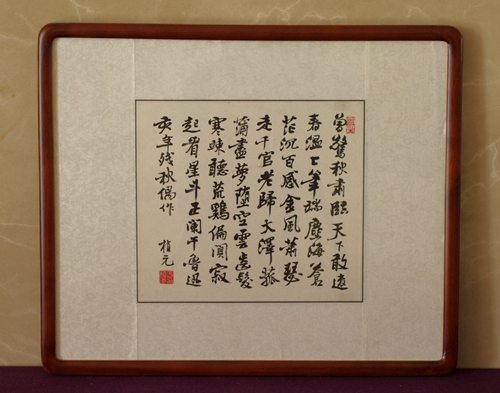 曾驚秋肅臨天下敢遣
春溫上筆端塵海蒼
茫沉百感金風蕭瑟
走千官老歸大澤菰
蒲盡夢墜空雲齒髮
寒竦聽荒鷄偏闃寂
起看星斗正闌干魯迅
亥年残秋偶作
植元